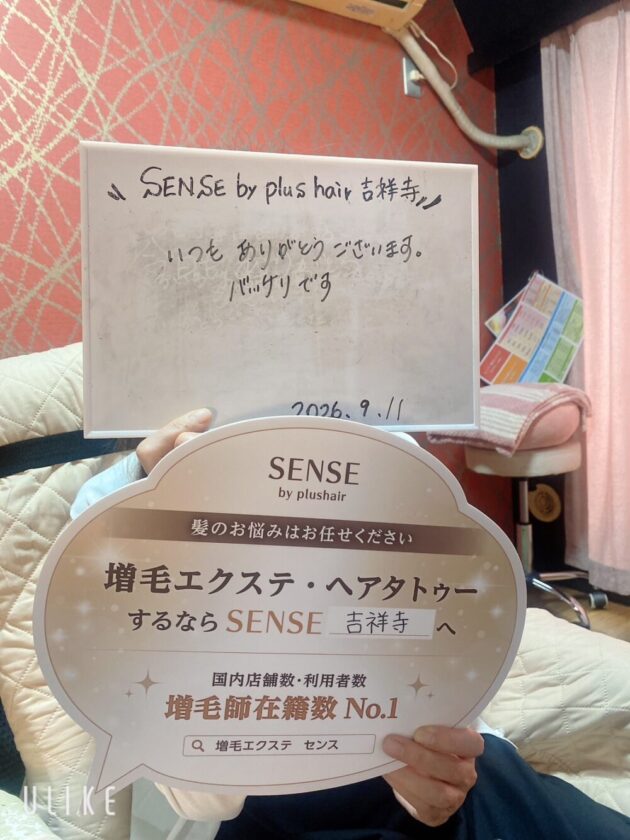 SENSE by plus hair 吉祥寺
いつも ありがとうございます。
バッサリです
2026.9.11
SENSE
by plushair
髪のお悩みはお任せください
増毛エクステ・ヘアタトゥー
するなら SENSE 吉祥寺 へ
国内店舗数・利用者数
増毛師在籍数 No.1
増毛エクステ センス
ULIKE